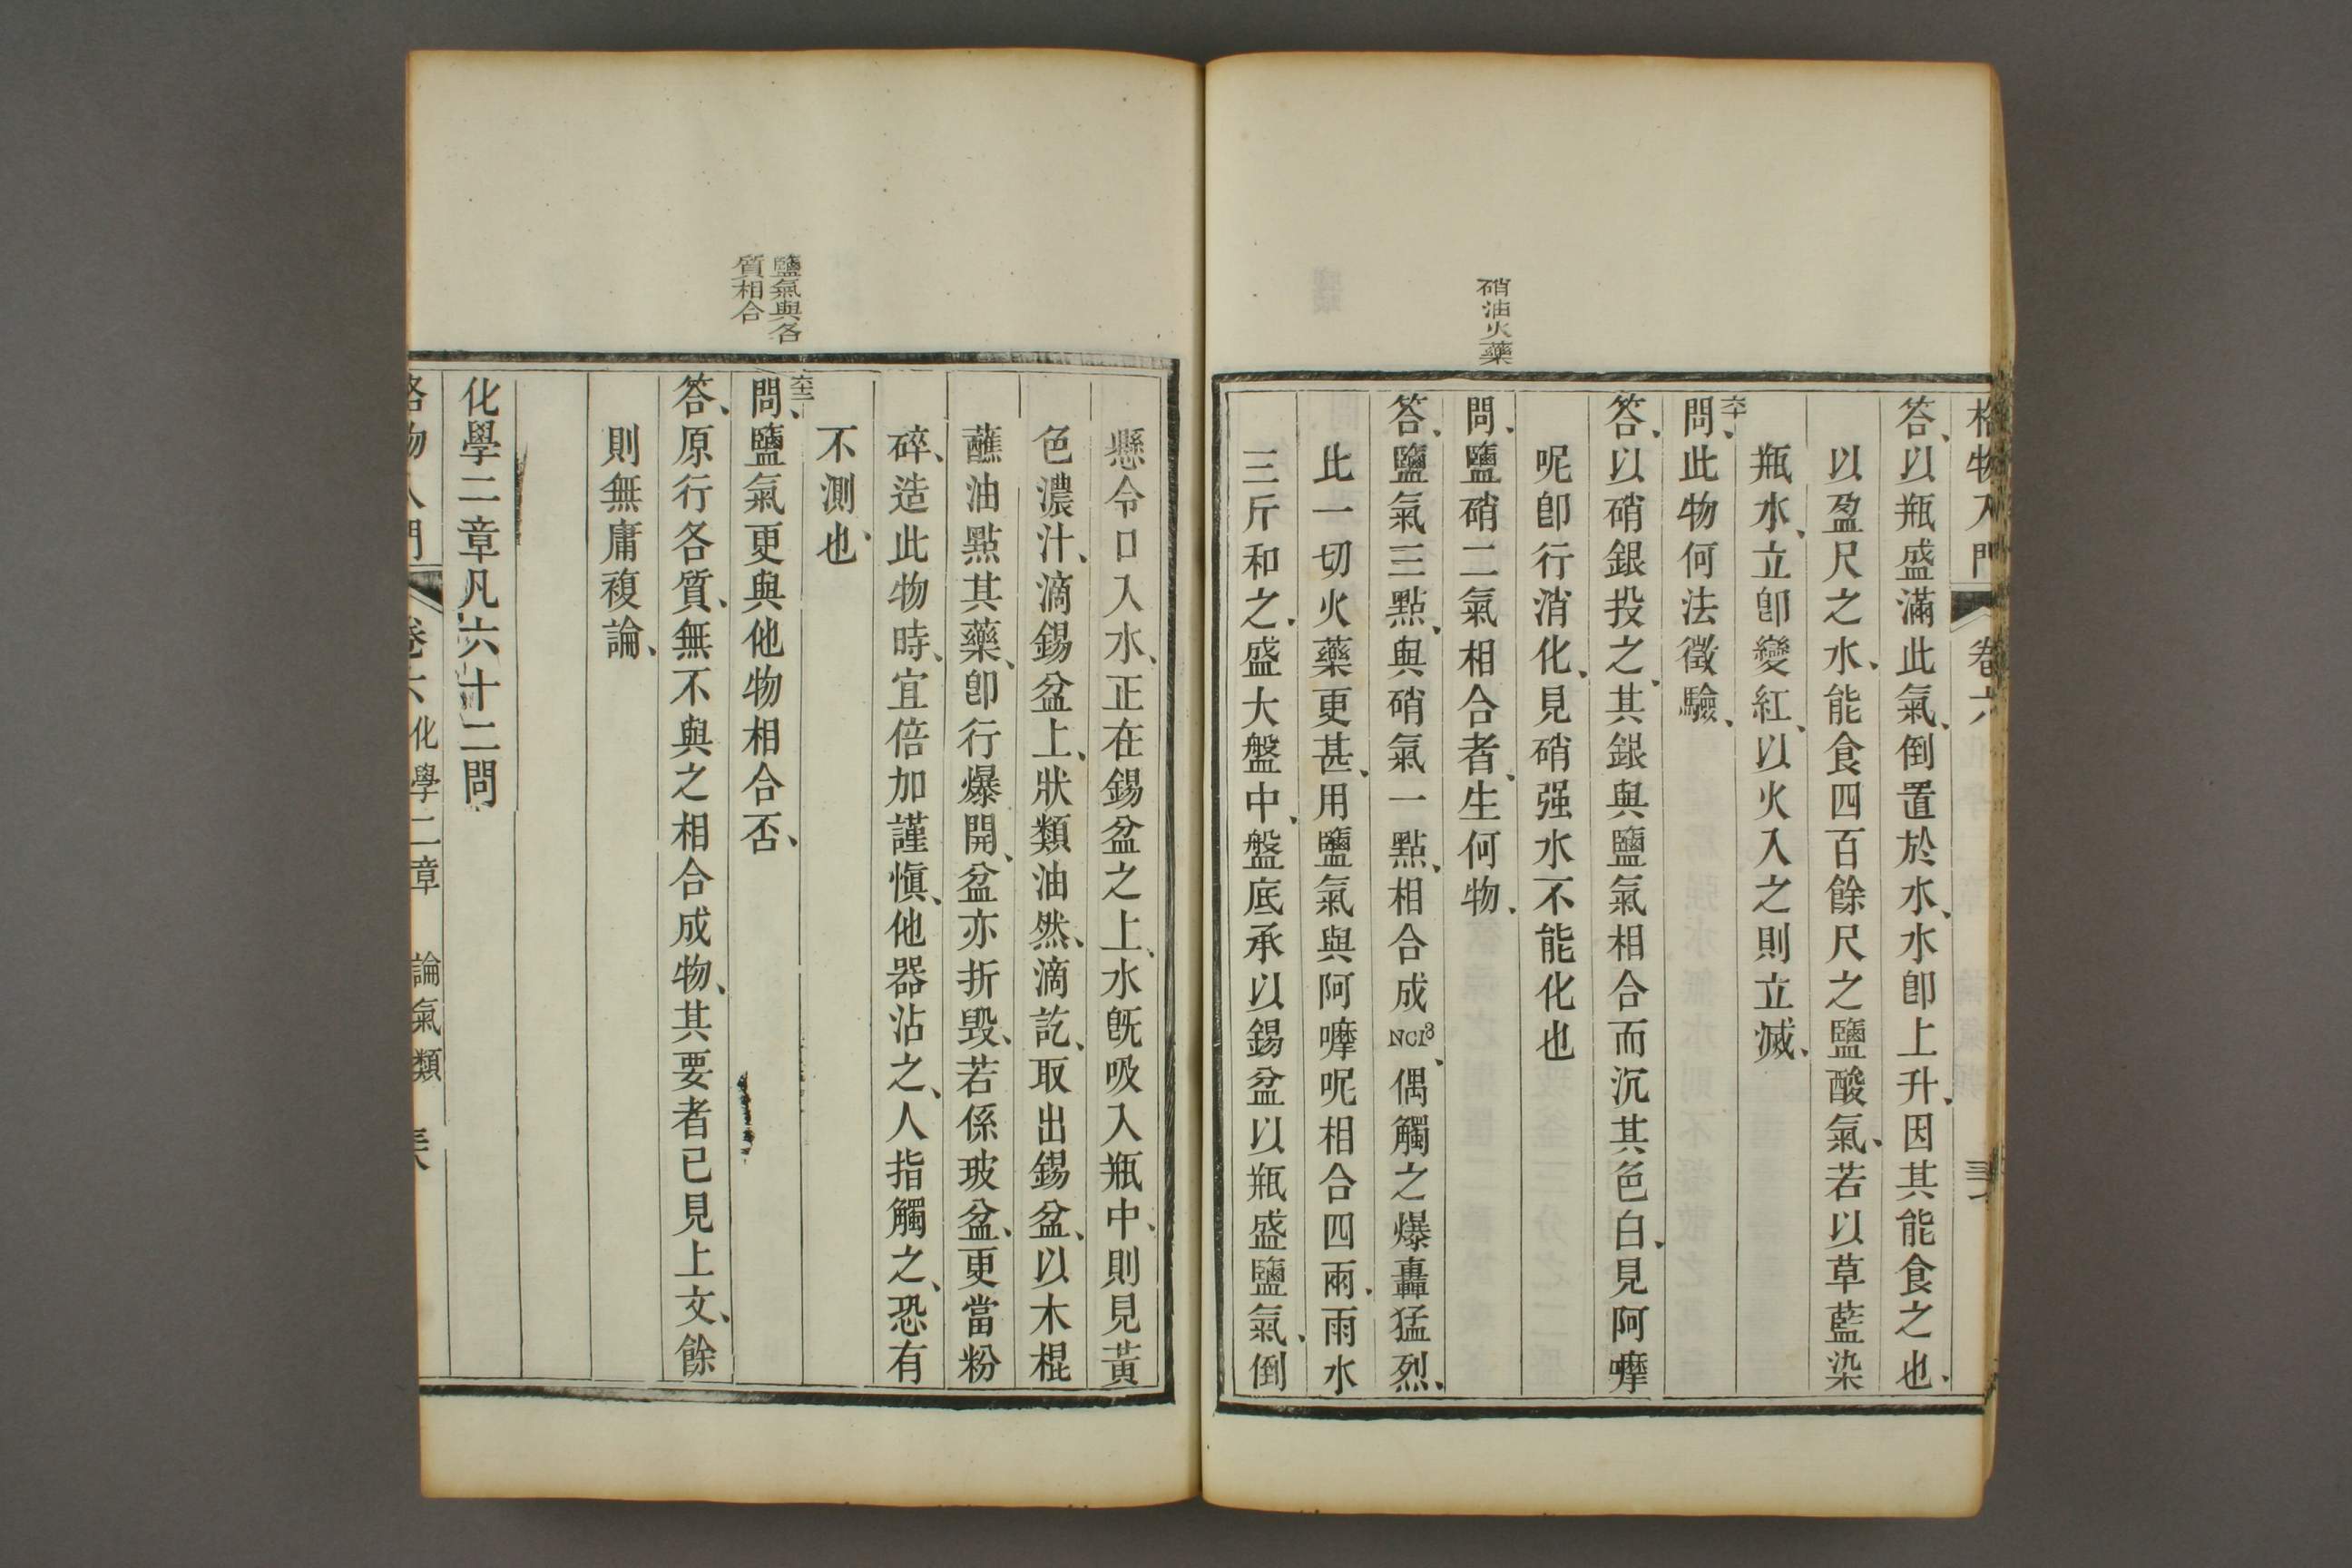 格物入門 卷六
答、以瓶盛滿此氣、倒置於水、水卽上升、因其能食之也、
以盈尺之水、能食四百餘尺之鹽酸氣、若以草藍染
瓶水、立卽變紅、以火入之則立滅、
問、此物何法徵驗、
答、以硝銀投之、其銀與鹽氣相合而沉其色白、見阿嚤
呢卽行消化、見硝强水不能化也
硝油火藥
問、鹽硝二氣相合者、生何物、
答、鹽氣三點、與硝氣一點、相合成NCl³、偶觸之爆轟猛烈、
此一切火藥更甚、用鹽氣與阿嚤呢相合四兩、雨水
三斤和之、盛大盤中、盤底承以錫盆以瓶盛鹽氣、倒
懸令口入水、正在錫盆之上、水旣吸入瓶中、則見黃
色濃汁、滴錫盆上、狀類油然、滴訖、取出錫盆、以木棍
蘸油點其藥、卽行爆開、盆亦折毀、若係玻盆、更當粉
碎、造此物時、宜倍加謹愼、他器沾之、人指觸之、恐有
不測也、
鹽氣與各
質相合
問、鹽氣更與他物相合否、
答、原行各質、無不與之相合成物、其要者已見上文、餘
則無庸複論、
化學二章凡六十二問
格物入門 卷六 化學二章 論氣類